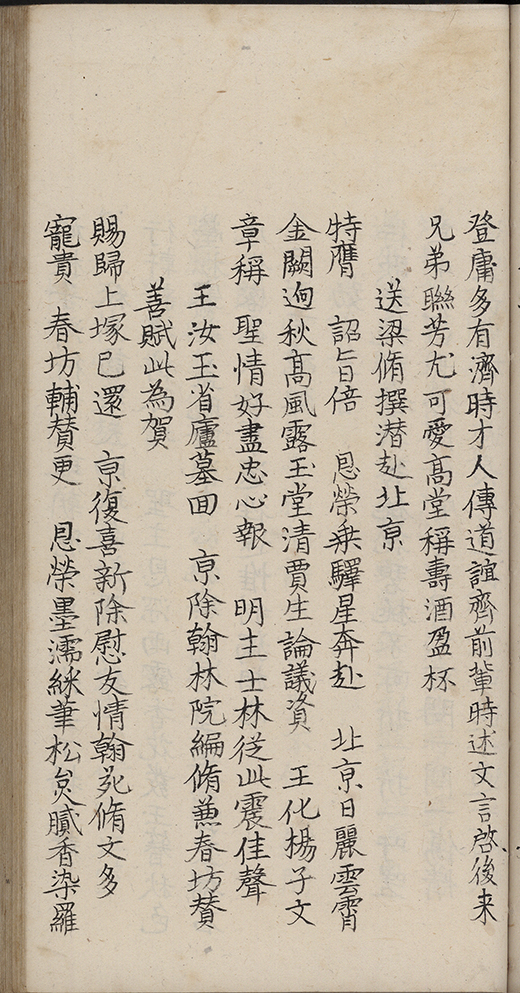 登庸多有濟時才人傳道誼齊前軰時述文言啓後来
兄弟聯芳尤可愛髙堂稱壽酒盈杯
送梁脩撰潜赴北京
特膺 詔旨倍 恩榮乗驛星奔赴 北京日麗雲霄
金闕逈秋髙風露玉堂清賈生論議資 王化楊子文
章稱 聖情好盡忠心報 明主士林従此震佳聲
王汝玉省廬墓囬 京除翰林院編脩兼春坊賛
善賦此為賀
賜歸上塚已還 京復喜新除慰友情翰苑脩文多
寵貴 春坊輔賛更 恩榮墨濡綵筆松炱膩香染羅